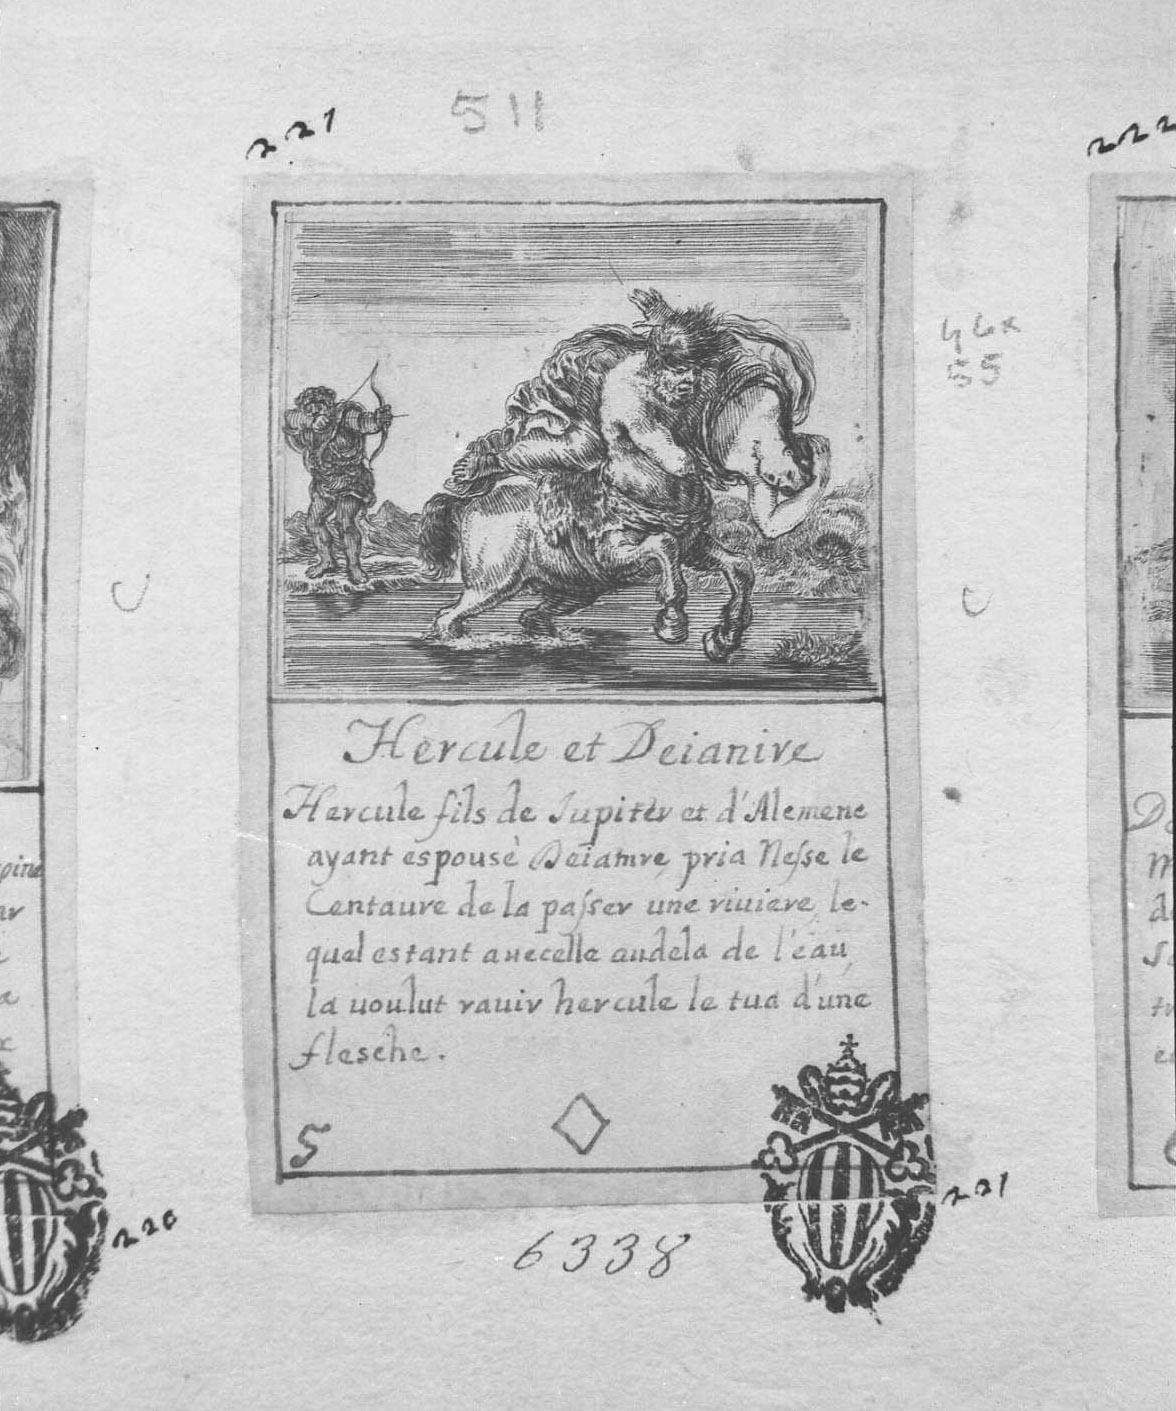 511
221
222
46x
55
C
C
Hercule et Deianire
Hercule fils de Jupiter et d'Alemene
ayant espousè Deiamre, pria Nesse le
Centaure de la passer une riuiere, le-
quel estant auecelle audela de l'eau,
la uoulut rauir hercule le tua d'une
flesche.
5
221
220
6338
pine